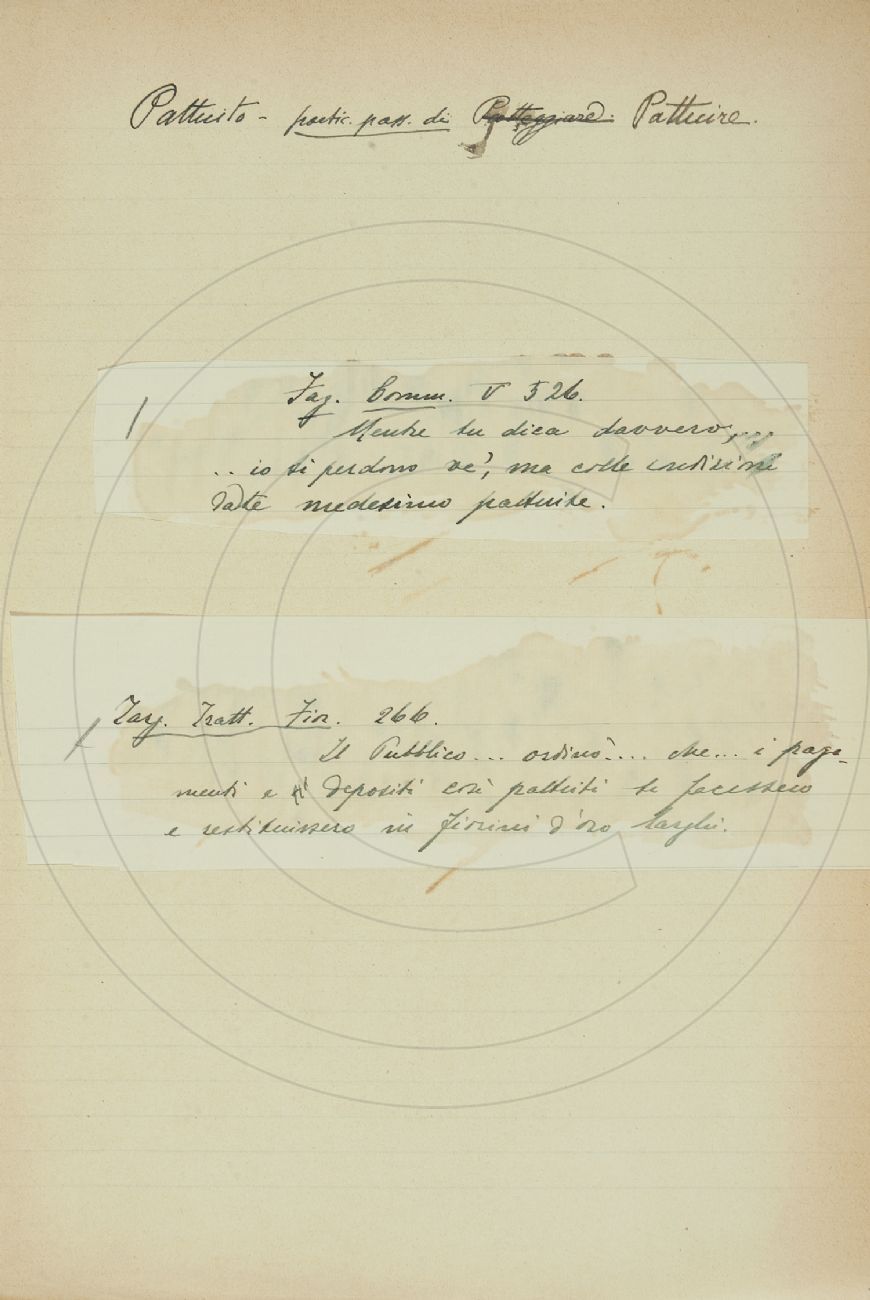 Pattuito - partic. pass. di Patteggiare. Pattuire.
Fag. Comm. V 526.
Mentre tu dica davvero,...
.. io ti perdono ve', ma colle condizioni
date medesimo pattuite.
Targ. Tratt. Fior. 266.
Il Pubblico ... ordinò .... che ... i paga-
menti e i depositi così pattuiti si facessero
e restituissero in fiorini d'oro larghi.